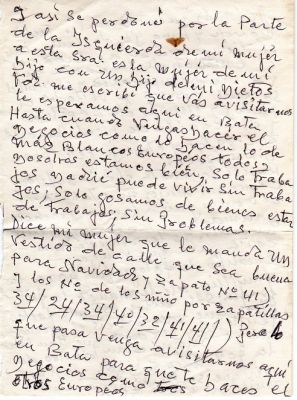 I así se perdonó por la Parte
de la Isquierda de mi mujer
a esta Sra. esta Mujer de mi
hijo con un hijo de mi Nietos
me escribí que vas avisitarnos
te esperamos aquí en Bata
Hasta cuando Vengas hacer el
negocios como lo hacen lo de
mas Blancos Europeos todos,
Nosotros estamos bien, Solo Traba
jos Nadie puede vivir Sin Traba
jos, Solo Gosamos de bienes estar
de Trabajos, Sin Problemas.
Dice mi mujer que le manda un
Vestido de calle que Sea buena
para Navidad y Zapato Nº 41)
y los Nº de los niño por Zapatillas
34/ 24/ 34/ 40/ 32/ 41/ 41/) Pero lo
que pasa Venga avisitarnos aquí
en Bata para que te haces el
negocios como
otros Europeos